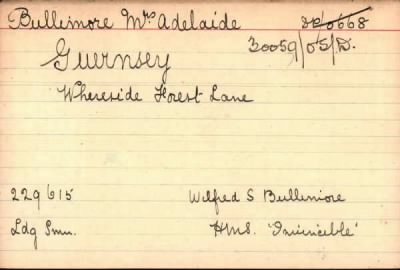 Bullimore Mrs Adelaide
Guernsey
30059/05/D.
Whereside Forest Lane
229615 Wilfred S Bullimore
Ldg Smn. HMS. "Invincible"